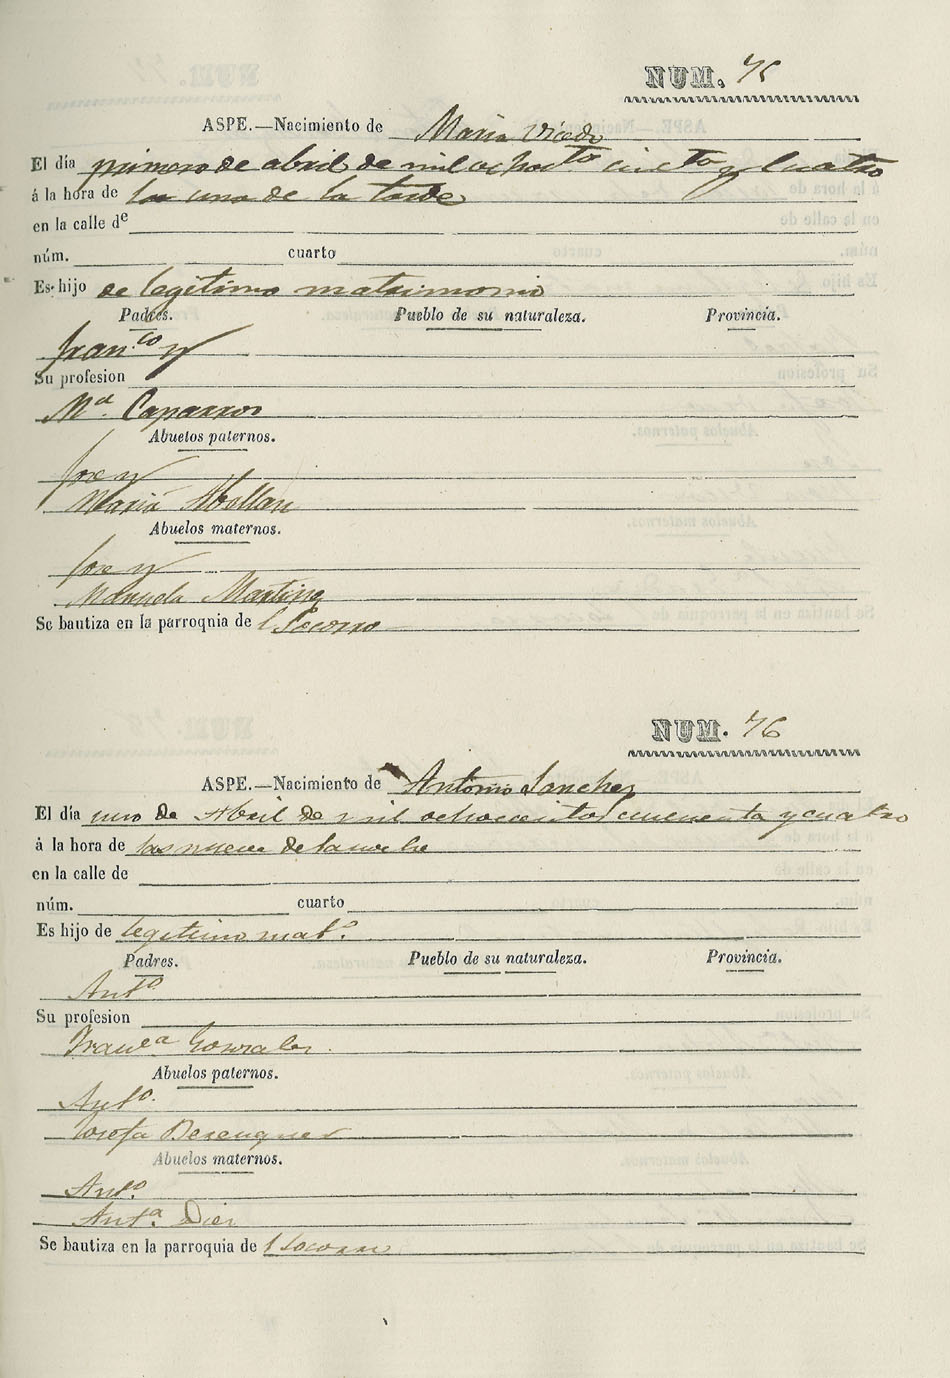 NUM. 75
ASPE.—Nacimiento de Maria Vicedo
El día primero de abril de mil ochoto cincta y cuatro
á la hora de la una de la tarde
en la calle de
núm. cuarto
Es hijo de legitimo matrimonio
Padres. Pueblo de su naturaleza. Provincia.
Fran.co y
Su profesion
Ma. Caparros
Abuelos paternos.
Jose y
Maria Abellan
Abuelos maternos.
Jose y
Manuela Martinez
Se bautiza en la parroquia de l Socorro
NUM. 76
ASPE.—Nacimiento de Antonio Sanchez
El día uno de Abril de mil ochocientos cincuenta y cuatro
á la hora de las nueve de la noche
en la calle de
núm. cuarto
Es hijo de legitimo mato.
Padres. Pueblo de su naturaleza. Provincia.
Anto
Su profesion
Franca Gonzalez
Abuelos paternos.
Anto.
Josefa Berenguer
Abuelos maternos.
Anto.
Anta. Diez
Se bautiza en la parroquia de l Socorro